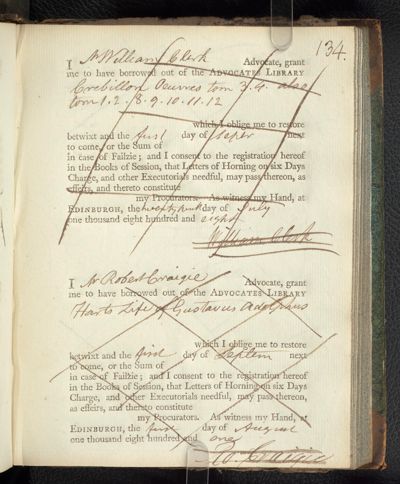 134.
I Mr William Clerk Advocate, grant
me to have borrowed out of the ADVOCATES LIBRARY
Crebillon Oeuvres tom 3.4. also
tom 1.2. 8.9.10.11.12
which I oblige me to restore
betwixt and the first day of next
to come, or the Sum of
in case of Failzie; and I consent to the registration hereof
in the Books of Session, that Letters of Horning on six Days
Charge, and other Executorials needful, may pass thereon, as
effeirs, and thereto constitute
my Procurators. As witness my Hand, at
EDINBURGH, the day of July
one thousand eight hundred and eight
William Clerk
I Mr Robert Craigie Advocate, grant
me to have borrowed out of the ADVOCATES LIBRARY
Harts Life of Gustavus Adolphus
which I oblige me to restore
betwixt and the first day of Septem next
to come, or the Sum of
in case of Failzie; and I consent to the registration hereof
in the Books of Session, that Letters of Horning on six Days
Charge, and other Executorials needful, may pass thereon,
as effeirs, and thereto constitute
my Procurators. As witness my Hand, at
EDINBURGH, the first day of August
one thousand eight hundred and one
Ro: Craigie